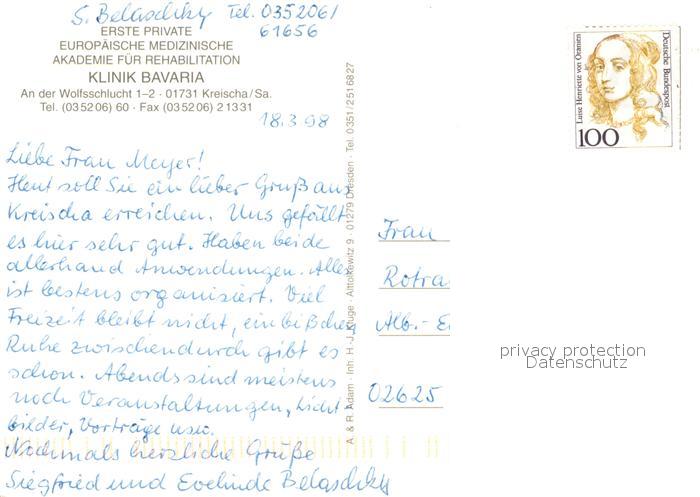 S. Belaschky Tel. 035206/
61656
ERSTE PRIVATE
EUROPÄISCHE MEDIZINISCHE
AKADEMIE FÜR REHABILITATION
KLINIK BAVARIA
An der Wolfsschlucht 1–2 · 01731 Kreischa/Sa.
Tel. (035206) 60 · Fax (035206) 21331
18.3.98
Liebe Frau Meyer!
Heut soll Sie ein lieber Gruß aus
Kreischa erreichen. Uns gefällt
es hier sehr gut. Haben beide
allerhand Anwendungen. Alles
ist bestens organisiert. Viel
Freizeit bleibt nicht, ein bißchen
Ruhe zwischendurch gibt es
schon. Abends sind meistens
noch Veranstaltungen, Licht-
bilder, Vorträge usw.
Nochmals herzliche Grüße
Siegfried und Evelinde Belaschky
A. & R. Adam · Inh. H.-J. · Altlockwitz 9 · 01279 Dresden · Tel. 0351/2516827
Luise Henriette von Oranien
Deutsche Bundespost
100
Frau
Rotra
Alb.-E
02625
privacy protection
Datenschutz